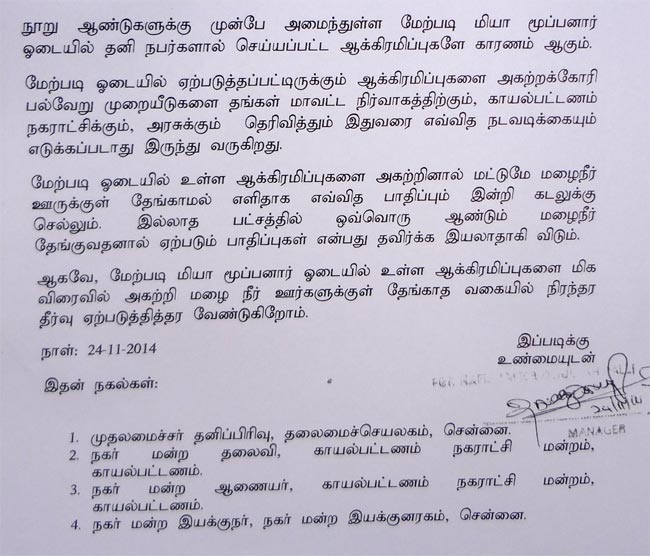 நூறு ஆண்டுகளுக்கு முன்பே அமைந்துள்ள மேற்படி மியா மூப்பனார்
ஓடையில் தனி நபர்களால் செய்யப்பட்ட ஆக்கிரமிப்புகளே காரணம் ஆகும்.
மேற்படி ஓடையில் ஏற்படுத்தப்பட்டிருக்கும் ஆக்கிரமிப்புகளை அகற்றக்கோரி
பல்வேறு முறையீடுகளை தங்கள் மாவட்ட நிர்வாகத்திற்கும், காயல்பட்டணம்
நகராட்சிக்கும், அரசுக்கும் தெரிவித்தும் இதுவரை எவ்வித நடவடிக்கையும்
எடுக்கப்படாது இருந்து வருகிறது.
மேற்படி ஓடையில் உள்ள ஆக்கிரமிப்புகளை அகற்றினால் மட்டுமே மழைநீர்
ஊருக்குள் தேங்காமல் எளிதாக எவ்வித பாதிப்பும் இன்றி கடலுக்கு
செல்லும். இல்லாத பட்சத்தில் ஒவ்வொரு ஆண்டும் மழைநீர்
தேங்குவதனால் ஏற்படும் பாதிப்புகள் என்பது தவிர்க்க இயலாதாகி விடும்.
ஆகவே, மேற்படி மியா மூப்பனார் ஓடையில் உள்ள ஆக்கிரமிப்புகளை மிக
விரைவில் அகற்றி மழை நீர் ஊர்களுக்குள் தேங்காத வகையில் நிரந்தர
தீர்வு ஏற்படுத்தித்தர வேண்டுகிறோம்.
நாள்: 24-11-2014
இப்படிக்கு
உண்மையுடன்
இதன் நகல்கள்:
MANAGER
1. முதலமைச்சர் தனிப்பிரிவு, தலைமைச்செயலகம், சென்னை.
2. நகர் மன்ற தலைவி, காயல்பட்டணம் நகராட்சி மன்றம்,
காயல்பட்டணம்.
3. நகர் மன்ற ஆணையர், காயல்பட்டணம் நகராட்சி மன்றம்,
காயல்பட்டணம்.
4. நகர் மன்ற இயக்குநர், நகர் மன்ற இயக்குனரகம், சென்னை.